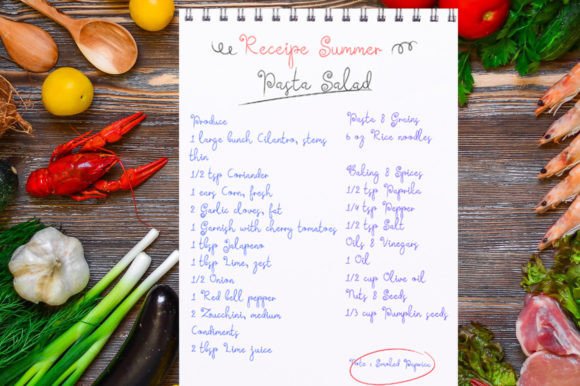 Receipe Summer
Pasta Salad
Produce
1 large bunch Cilantro, stems
thin
1/2 tsp Coriander
1 ears Corn, fresh
2 Garlic cloves, fat
1 Garnish with cherry tomatoes
1 tbsp Jalapeno
1 tbsp Lime, zest
1/2 Onion
1 Red bell pepper
2 Zucchini, medium
Condiments
2 tbsp Lime juice
Pasta & Grains
6 oz Rice noodles
Baking & Spices
1/2 tsp Paprika
1/4 tsp Pepper
1/2 tsp Salt
Oils & Vinegars
1 Oil
1/2 cup Olive oil
Nuts & Seeds
1/3 cup Pumpkin seeds
Note : Smoked Paprica